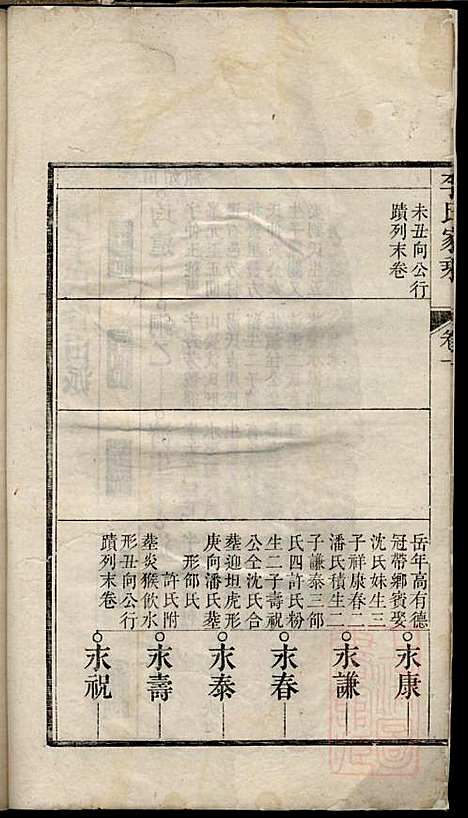 李氏家
卷一
未丑向公行
蹟列末卷
岳年高有德
冠帶鄉賓娶
沈氏妹生三
子祥康春二
潘氏積生二
子謙泰三邰
氏四許氏粉
生二子壽祝
公全沈氏合
塟迎坦虎形
庚向潘氏塟
形邰氏
許氏附
塟炎猴飲水
形丑向公行
蹟列末卷
永康
永謙
永春
永泰
永壽
永祝